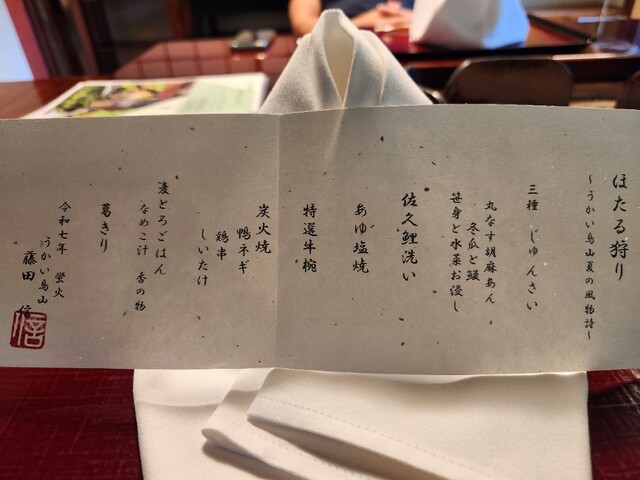 ほたる狩り
～うかい鳥山夏の風物詩～
三種　じゅんさい
丸なす胡麻あん
冬瓜と鰻
笹身と水菜お浸し
佐久鯉洗い
あゆ塩焼
特選牛椀
炭火焼
鴨ネギ
鶏串
しいたけ
麦とろごはん
なめこ汁　香の物
葛きり
令和七年　蛍火
うかい鳥山
藤田　信
信